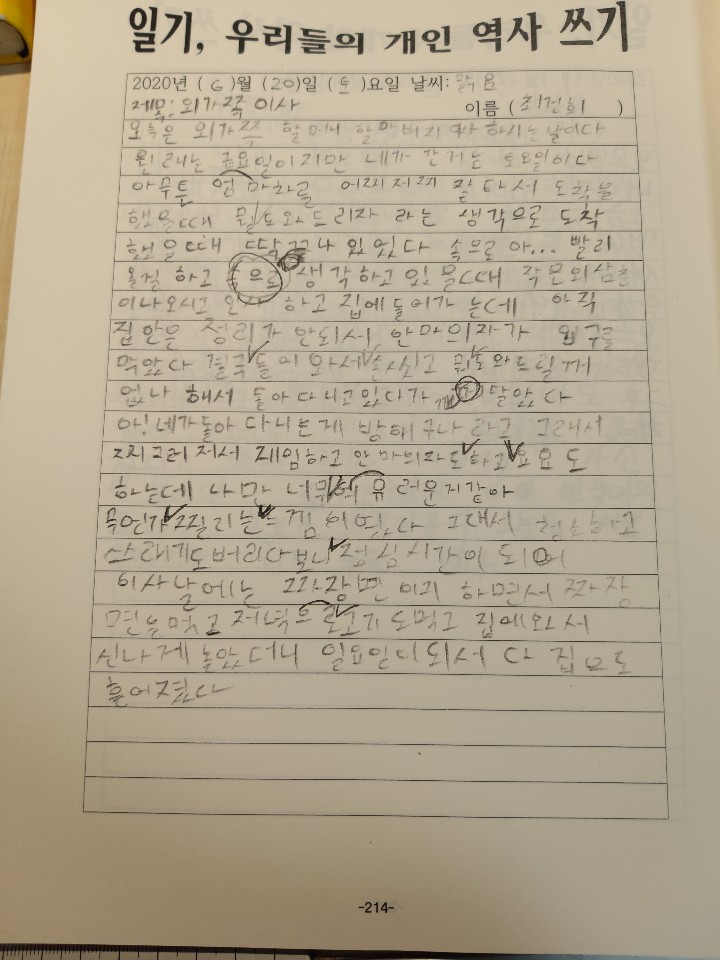 일기, 우리들의 개인 역사 쓰기
2020년 (6)월 (20)일 (토)요일 날씨: 맑음
제목: 외가쪽 이사 이름 (최건희)
오늘은 외가쪽 할머니 할아버지 이사 하시는날이다
원래는 금요일이지만 내가 간거는 토요일이다
아무튼 엄마차를 어찌저찌 잘타서 도착을
했을때 뭘도와드리자 라는 생각으로 도착
했을때 딱끝나 있었다 속으로 아... 빨리
올걸 하고 속으로 생각하고 있을때 작은외삼촌
이나오시고 인사 하고 집에들어가 는데 아직
집안은 정리가 안되서 안마의자가 입구를
막았다 결국들이 와서 손씻고 뭐도와드릴게
없나 해서 돌아다니고있다가 깨달았다
아! 네가돌아 다니는게 방해구나 라고 그래서
찌그러져서 게임하고 안마의자도하고 요요도
하는데 나만 너무 여유러운거같아
죽언가찔리는느낌이였다 그래서 청소하고
쓰래기도버리다보니점심시간이 되어
이사날에는 짜장면 이지 하면서 짜장
면을먹고 저녁으로고기도먹고 집에와서
신나게 놀았더니 일요일이되서 다 집으로
흩어졌다
-214-